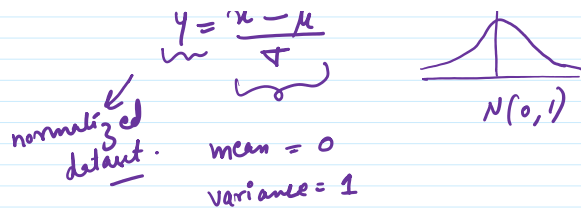 y = x - μ
σ
N(0,1)
normalized
dataset.
mean = 0
variance = 1